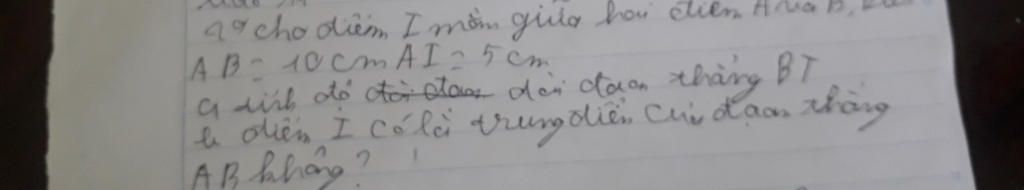 cho điểm I nằm giữa hai điểm A và B,
AB = 10 cm AI = 5 cm
a tính độ dài đoạn thẳng BI
b điểm I có là trung điểm của đoạn thẳng
AB không?